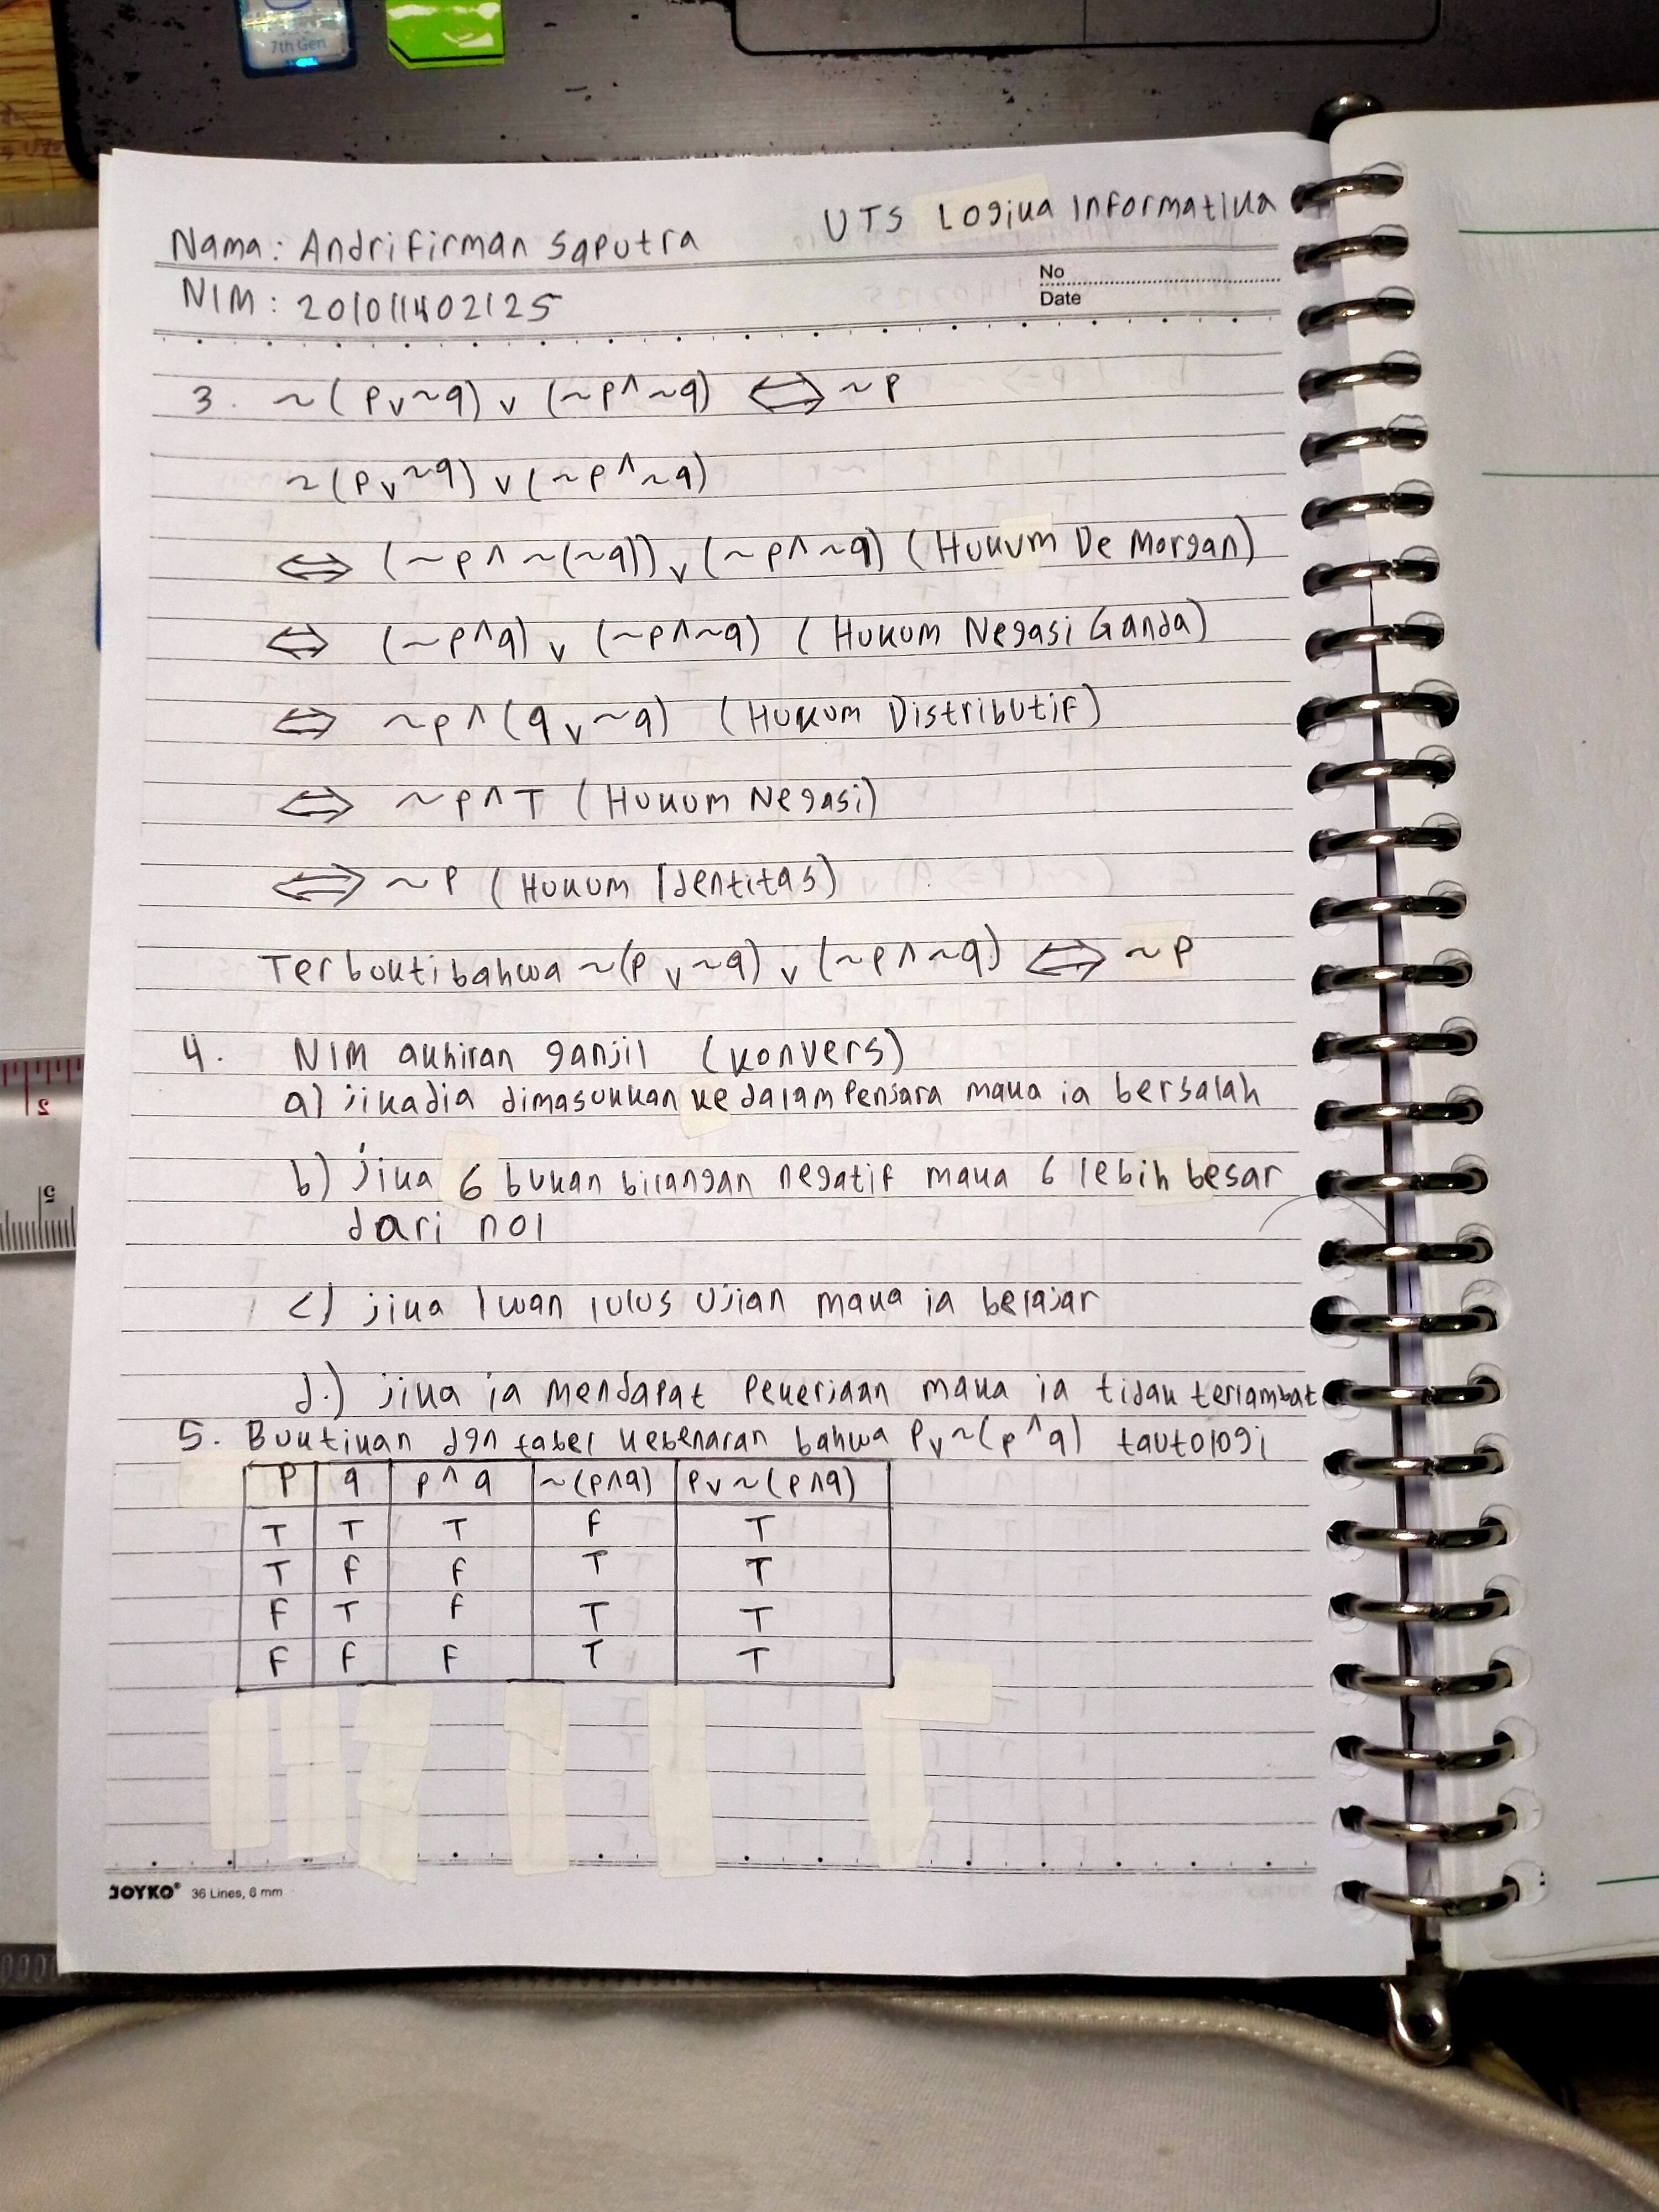 7th Gen
UTS Logika Informatika
Nama : Andri Firman Saputra
No
NIM : 201011402125
Date
3. ~(p∨~q)∨(~p∧~q) ⟺ ~p
~(p∨~q)∨(~p∧~q)
⟺ (~p∧~(~q))∨(~p∧~q) (Hukum De Morgan)
⟺ (~p∧q)∨(~p∧~q) (Hukum Negasi Ganda)
⟺ ~p∧(q∨~q) (Hukum Distributif)
⟺ ~p∧T (Hukum Negasi)
⟺ ~p (Hukum Identitas)
Terbukti bahwa ~(p∨~q)∨(~p∧~q) ⟺ ~p
4. NIM akhiran ganjil (konvers)
a) jika dia dimasukkan ke dalam Penjara maka ia bersalah
b) jika 6 bukan bilangan negatif maka 6 lebih besar
dari nol
c) jika Iwan lulus ujian maka ia belajar
d.) jika ia mendapat pekerjaan maka ia tidak terlambat
5. Buktikan dgn tabel kebenaran bahwa p∨~(p∧q) tautologi
P q p∧q ~(p∧q) p∨~(p∧q)
T T T F T
T F F T T
F T F T T
F F F T T
JOYKO® 36 Lines, 8 mm